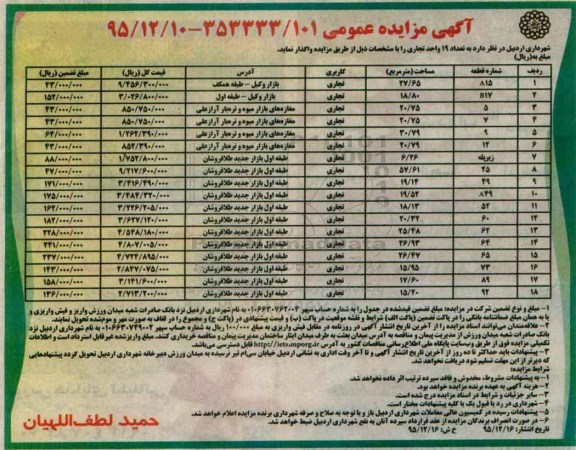 آگهی مزایده عمومی ۳۵۳۳۳۳/۱۰۱-۹۵/۱۲/۱۰
شهرداری اردبیل در نظر دارد به تعداد ۱۹ واحد تجاری را با مشخصات ذیل از طریق مزایده واگذار نماید.
مبلغ به(ریال)
ردیف شماره قطعه مساحت (مترمربع) کاربری آدرس قیمت کل (ریال) مبلغ تضمین (ریال)
۱ ۸۱۵ ۲۷/۶۵ تجاری بازار وکیل – طبقه همکف ۹/۴۵۶/۳۰۰/۰۰۰ ۴۳/۰۰۰/۰۰۰
۲ ۱۱۱۷ ۱۸/۸۰ تجاری بازار وکیل – طبقه اول ۳/۰۲۶/۸۰۰/۰۰۰ ۱۵۲/۰۰۰/۰۰۰
۳ ۵ ۲۰/۷۵ تجاری مغازه‌های بازار میوه و تره‌بار آرازعلی ۸۵۰/۷۵۰/۰۰۰ ۴۳/۰۰۰/۰۰۰
۴ ۷ ۲۰/۷۵ تجاری مغازه‌های بازار میوه و تره‌بار آرازعلی ۸۵۰/۷۵۰/۰۰۰ ۴۳/۰۰۰/۰۰۰
۵ ۹ ۳۰/۷۹ تجاری مغازه‌های بازار میوه و تره‌بار آرازعلی ۱/۲۶۲/۳۹۰/۰۰۰ ۶۴/۰۰۰/۰۰۰
۶ ۱۲ ۲۰/۷۹ تجاری مغازه‌های بازار میوه و تره‌بار آرازعلی ۸۵۲/۳۹۰/۰۰۰ ۴۳/۰۰۰/۰۰۰
۷ زیرپله ۶/۲۶ تجاری طبقه اول بازار جدید طلافروشان ۱/۷۵۲/۸۰۰/۰۰۰ ۸۸/۰۰۰/۰۰۰
۸ ۲۵ ۵۷/۶۱ تجاری طبقه اول بازار جدید طلافروشان ۹/۲۱۷/۶۰۰/۰۰۰ ۴۷/۰۰۰/۰۰۰
۹ ۴۹ ۱۹/۱۴ تجاری طبقه اول بازار جدید طلافروشان ۳/۴۱۶/۴۹۰/۰۰۰ ۱۷۱/۰۰۰/۰۰۰
۱۰ ۸۴۹ ۱۹/۵۲ تجاری طبقه اول بازار جدید طلافروشان ۳/۴۸۴/۳۲۰/۰۰۰ ۱۷۵/۰۰۰/۰۰۰
۱۱ ۵۲ ۱۸/۱۳ تجاری طبقه اول بازار جدید طلافروشان ۳/۲۳۶/۲۰۵/۰۰۰ ۱۶۲/۰۰۰/۰۰۰
۱۲ ۶۰ ۲۰/۳۲ تجاری طبقه اول بازار جدید طلافروشان ۳/۶۲۷/۱۲۰/۰۰۰ ۱۸۲/۰۰۰/۰۰۰
۱۳ ۶۲ ۲۵/۴۸ تجاری طبقه اول بازار جدید طلافروشان ۴/۵۴۸/۱۸۰/۰۰۰ ۲۲۸/۰۰۰/۰۰۰
۱۴ ۶۴ ۲۶/۹۳ تجاری طبقه اول بازار جدید طلافروشان ۴/۸۰۷/۰۰۵/۰۰۰ ۲۴۱/۰۰۰/۰۰۰
۱۵ ۶۵ ۲۶/۴۷ تجاری طبقه اول بازار جدید طلافروشان ۴/۷۲۴/۸۹۵/۰۰۰ ۲۳۷/۰۰۰/۰۰۰
۱۶ ۷۳ ۱۵/۹۵ تجاری طبقه اول بازار جدید طلافروشان ۲/۸۴۷/۰۷۵/۰۰۰ ۱۴۳/۰۰۰/۰۰۰
۱۷ ۸۹ ۱۷/۶۰ تجاری طبقه اول بازار جدید طلافروشان ۳/۱۴۱/۶۰۰/۰۰۰ ۱۵۸/۰۰۰/۰۰۰
۱۸ ۹۲ ۱۵/۲۰ تجاری طبقه اول بازار جدید طلافروشان ۲/۷۱۳/۲۰۰/۰۰۰ ۱۳۶/۰۰۰/۰۰۰
۱– مبلغ و نوع تضمین شرکت در مزایده: مبلغ تضمین قیدشده در جدول را به شماره حساب سپهر ۰۱۰۶۶۳۰۷۶۲۰۰۲ به نام شهرداری اردبیل نزد بانک صادرات شعبه میدان ورزش واریز و فیش واریزی و
یا به همان مبلغ ضمانتنامه بانکی را در پاکت تضمین (پاکت الف) شرایط و نقشه موضوع در پاکت (ب) و قیمت پیشنهادی در (پاکت ج) و مجموع را در لفاف به صورت مهر و موم‌شده تحویل نمایند.
۲– علاقه‌مندان می‌توانند اسناد مزایده را از آخرین تاریخ انتشار آگهی در روزنامه در مقابل فیش واریزی به مبلغ ۱۰۰/۰۰۰ ریال به شماره حساب سپهر ۰۱۰۶۶۳۰۷۴۹۰۰۲ به نام شهرداری اردبیل نزد
بانک صادرات شعبه میدان ورزش از مدیریت پیمان و مناقصه به آدرس میدان بعثت به طرف میدان ایثار ساختمان مدیریت پیمان و مناقصه خریداری کنند. مبلغ واریزشده غیرقابل استرداد است و اطلاعات
تکمیلی مزایده فوق از طریق وب‌سایت پایگاه ملی اطلاع‌رسانی مناقصات کشور به آدرس http://iets.mporg.ir قابل دسترسی می‌باشد.
۳– پیشنهادات باید حداکثر تا ده روز از آخرین تاریخ انتشار آگهی و تا آخر وقت اداری به نشانی اردبیل خیابان سی‌ام تیر نرسیده به میدان ورزش دبیرخانه شهرداری اردبیل تحویل گردد پیشنهادهایی
که دیرتر از این مهلت تسلیم شود دریافت نخواهد شد.
شرایط مزایده:
۱– به پیشنهادات مشروط، مخدوش و فاقد سپرده ترتیب اثر داده نخواهد شد.
۲– هزینه آگهی به عهده برنده مزایده خواهد بود.
۳– سایر جزئیات و شرایط در اسناد مزایده درج شده است.
۴– شهرداری در رد یا قبول یک یا کلیه پیشنهادات مختار است.
۵– پیشنهادات رسیده در کمیسیون عالی معاملات شهرداری اردبیل باز و با توجه به صلاح و صرفه شهرداری برنده مزایده اعلام خواهد شد.
۶– در صورت انصراف برندگان مزایده از عقد قرارداد سپرده آنان به نفع شهرداری اردبیل ضبط خواهد شد.
تاریخ انتشار: ۹۵/۱۲/۱۶ خ ش: ۹۵/۱۲/۱۶
حمید لطف‌اللهیان